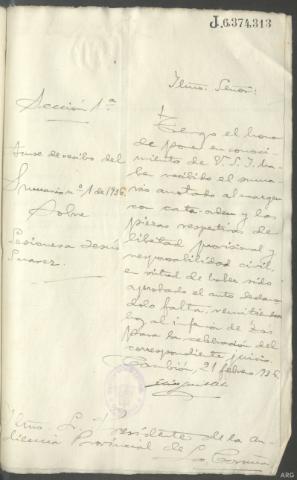 J.6.374.313
Iltmo. Señor:
Sección 1ª
Acuse de recibo del
Sumario nº 1 de 1936
sobre
Lesiones a Jesús
Suarez.
Tengo el honor
de poner en conoci-
miento de V.S.I. ha-
ber recibido el suma-
rio anotado al margen
con carta-orden y las
piezas respectivas de
libertad provisional y
responsabilidad civil,
en virtud de haber sido
aprobado el auto declaran-
dolo falta, remitiendo
hoy al inferior de
para la celebración del
correspondiente juicio.
21 febrero 936
Iltmo. Sr. Presidente de la Au-
diencia Provincial de La Coruña
ARG